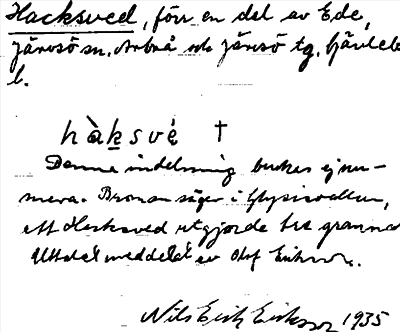 Hacksved, förr en del av Ede,
Järvsö sn, Arbrå och Järvsö tg, Gävleb.
l.
hàksvé †
Denna indelning brukas ej nu-
mera. Bronan säger i Glysisvallur,
att Hacksved utgjorde tre grannar
Uttalet meddelat av Olof Eriksson.
Nils Erik Eriksson 1935